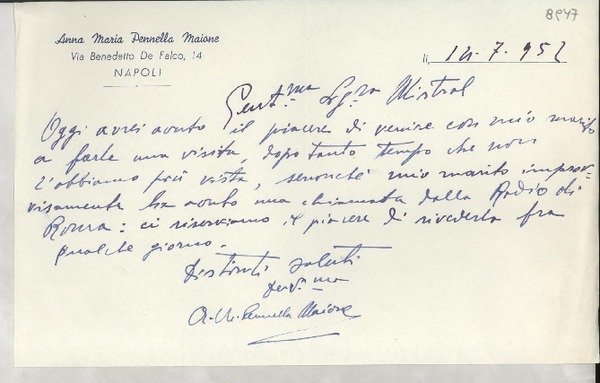 8947
Anna Maria Pennella Maione
Via Benedetto De Falco, 14
NAPOLI
li, 14.7.952
Gent.ma Sig.ra Mistral
Oggi avrei avuto il piacere di venire con mio marito
a farle una visita, dopo tanto tempo che non
l'abbiamo più vista, senonché mio marito improv-
visamente ha avuto una chiamata dalla Radio di
Roma: ci riserviamo il piacere di rivederla fra
qualche giorno.
Distinti saluti
Dev.ma
A. M. Pennella Maione